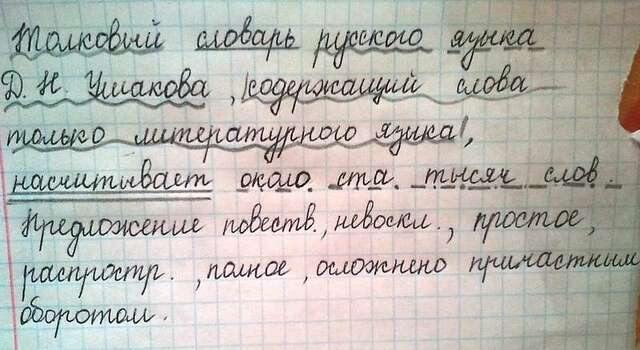 Толковый словарь русского языка
Д. Н. Ушакова, |содержащий слова
только литературного языка|,
насчитывает около ста тысяч слов.
Предложение повеств., невоскл., простое,
распростр., полное, осложнено причастным
оборотом.